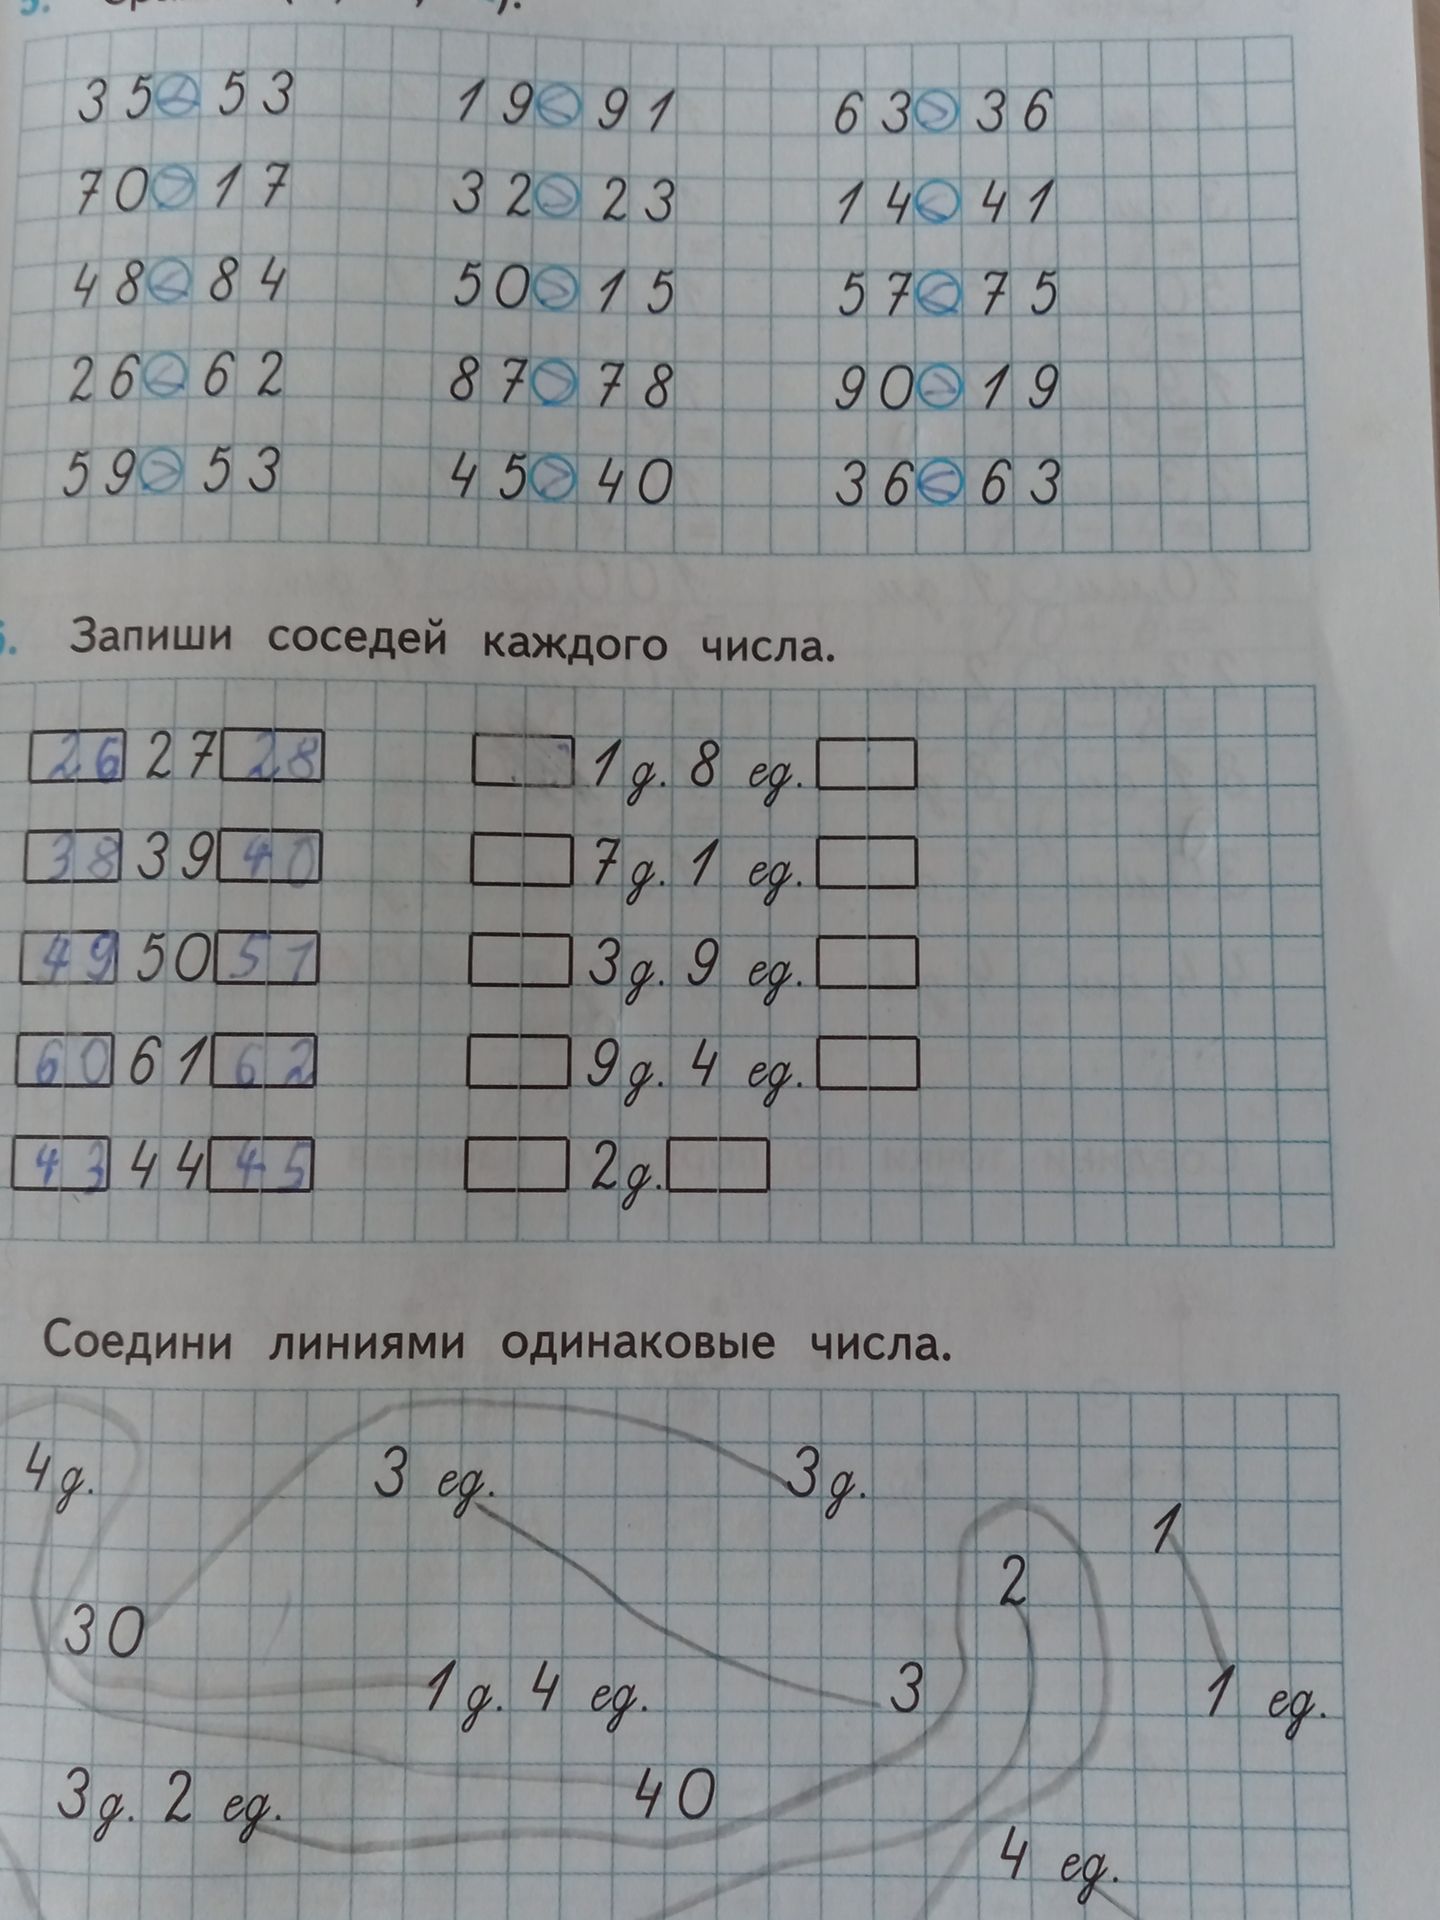 5.
35 < 53 19 < 91 63 > 36
70 > 17 32 > 23 14 < 41
48 < 84 50 > 15 57 < 75
26 < 62 87 > 78 90 > 19
59 > 53 45 > 40 36 < 63
6. Запиши соседей каждого числа.
26 27 28 1 д. 8 ед.
38 39 40 7 д. 1 ед.
49 50 51 3 д. 9 ед.
60 61 62 9 д. 4 ед.
43 44 45 2 д.
Соедини линиями одинаковые числа.
4 д. 3 ед. 3 д. 1
30 2
1 д. 4 ед. 3 1 ед.
3 д. 2 ед. 40
4 ед.